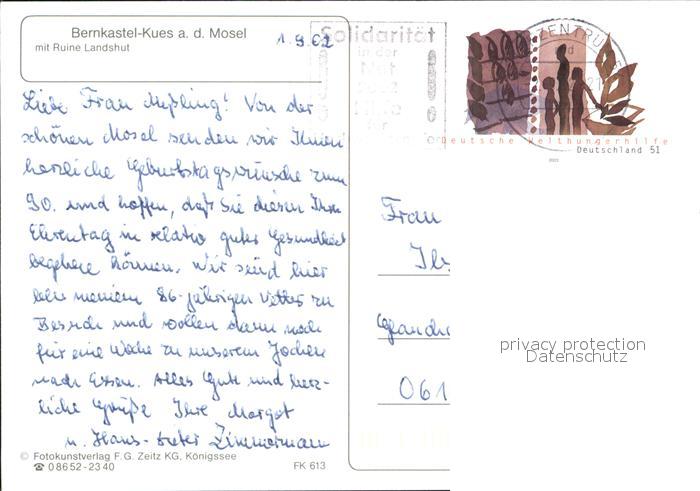 Bernkastel-Kues a. d. Mosel
mit Ruine Landshut
1.9.02
Solidarität
in der
Not
2002
ZENTRU
Deutsche Welthungerhilfe
Deutschland 51
Liebe Frau Meßling! Von der
schönen Mosel senden wir Ihnen
herzliche Geburtstagswünsche zum
90. und hoffen, daß Sie diesen Ihren
Ehrentag in relativ guter Gesundheit
begehen können. Wir sind hier
bei meinem 86-jährigen Vetter zu
Besuch und wollen dann noch
für eine Woche zu unserem Jochen
nach Essen. Alles Gute und herz-
liche Grüße Ihre Margot
u. Hans-Dieter Zimmermann
Frau
061
privacy protection
Datenschutz
© Fotokunstverlag F. G. Zeitz KG, Königssee
☎ 08652-2340
FK 613